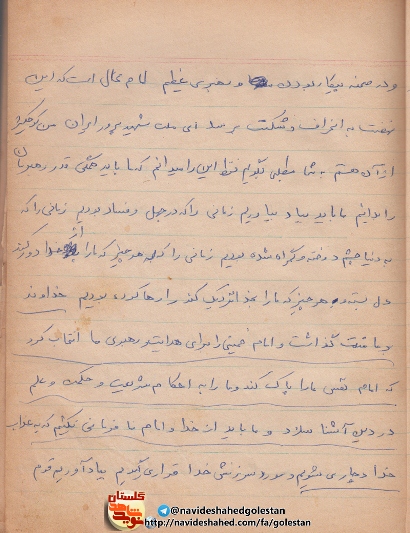 و در صحنه پیکار بودن و رهبری عظیم امام محال است که این
نهضت به انحراف و شکست برسد ای ملت شهید پرور ایران من کوچکتر
از آن هستم به شما مطلبی بگویم فقط این را میدانم که ما باید همگی قدر رهبرمان
را بدانیم ما باید بیاد بیاوریم زمانی را که در جهل و فساد بودیم زمانی را که
به دنیا چشم دوخته و گمراه شده بودیم زمانی را که به هر چیز که ما را از خدا دور کند
دل بسته و هر چیز که ما را بخدا نزدیک کند رها کرده بودیم خداوند
بر ما منت گذاشت و امام خمینی را برای هدایت و رهبری ما انتخاب کرد
که امام نفس ما را پاک کند و ما را به احکام شریعت و حکمت و علم
در دین آشنا سازد و ما باید از خدا و امام ما فرمانی نکنیم که به عذاب
خدا دچار می شویم و مورد سرزنش خدا قرار می گیریم بیاد آورید قوم
گلستان
نوید شاهد
@navideshahedgolestan
http://navideshahed.com/fa/golestan